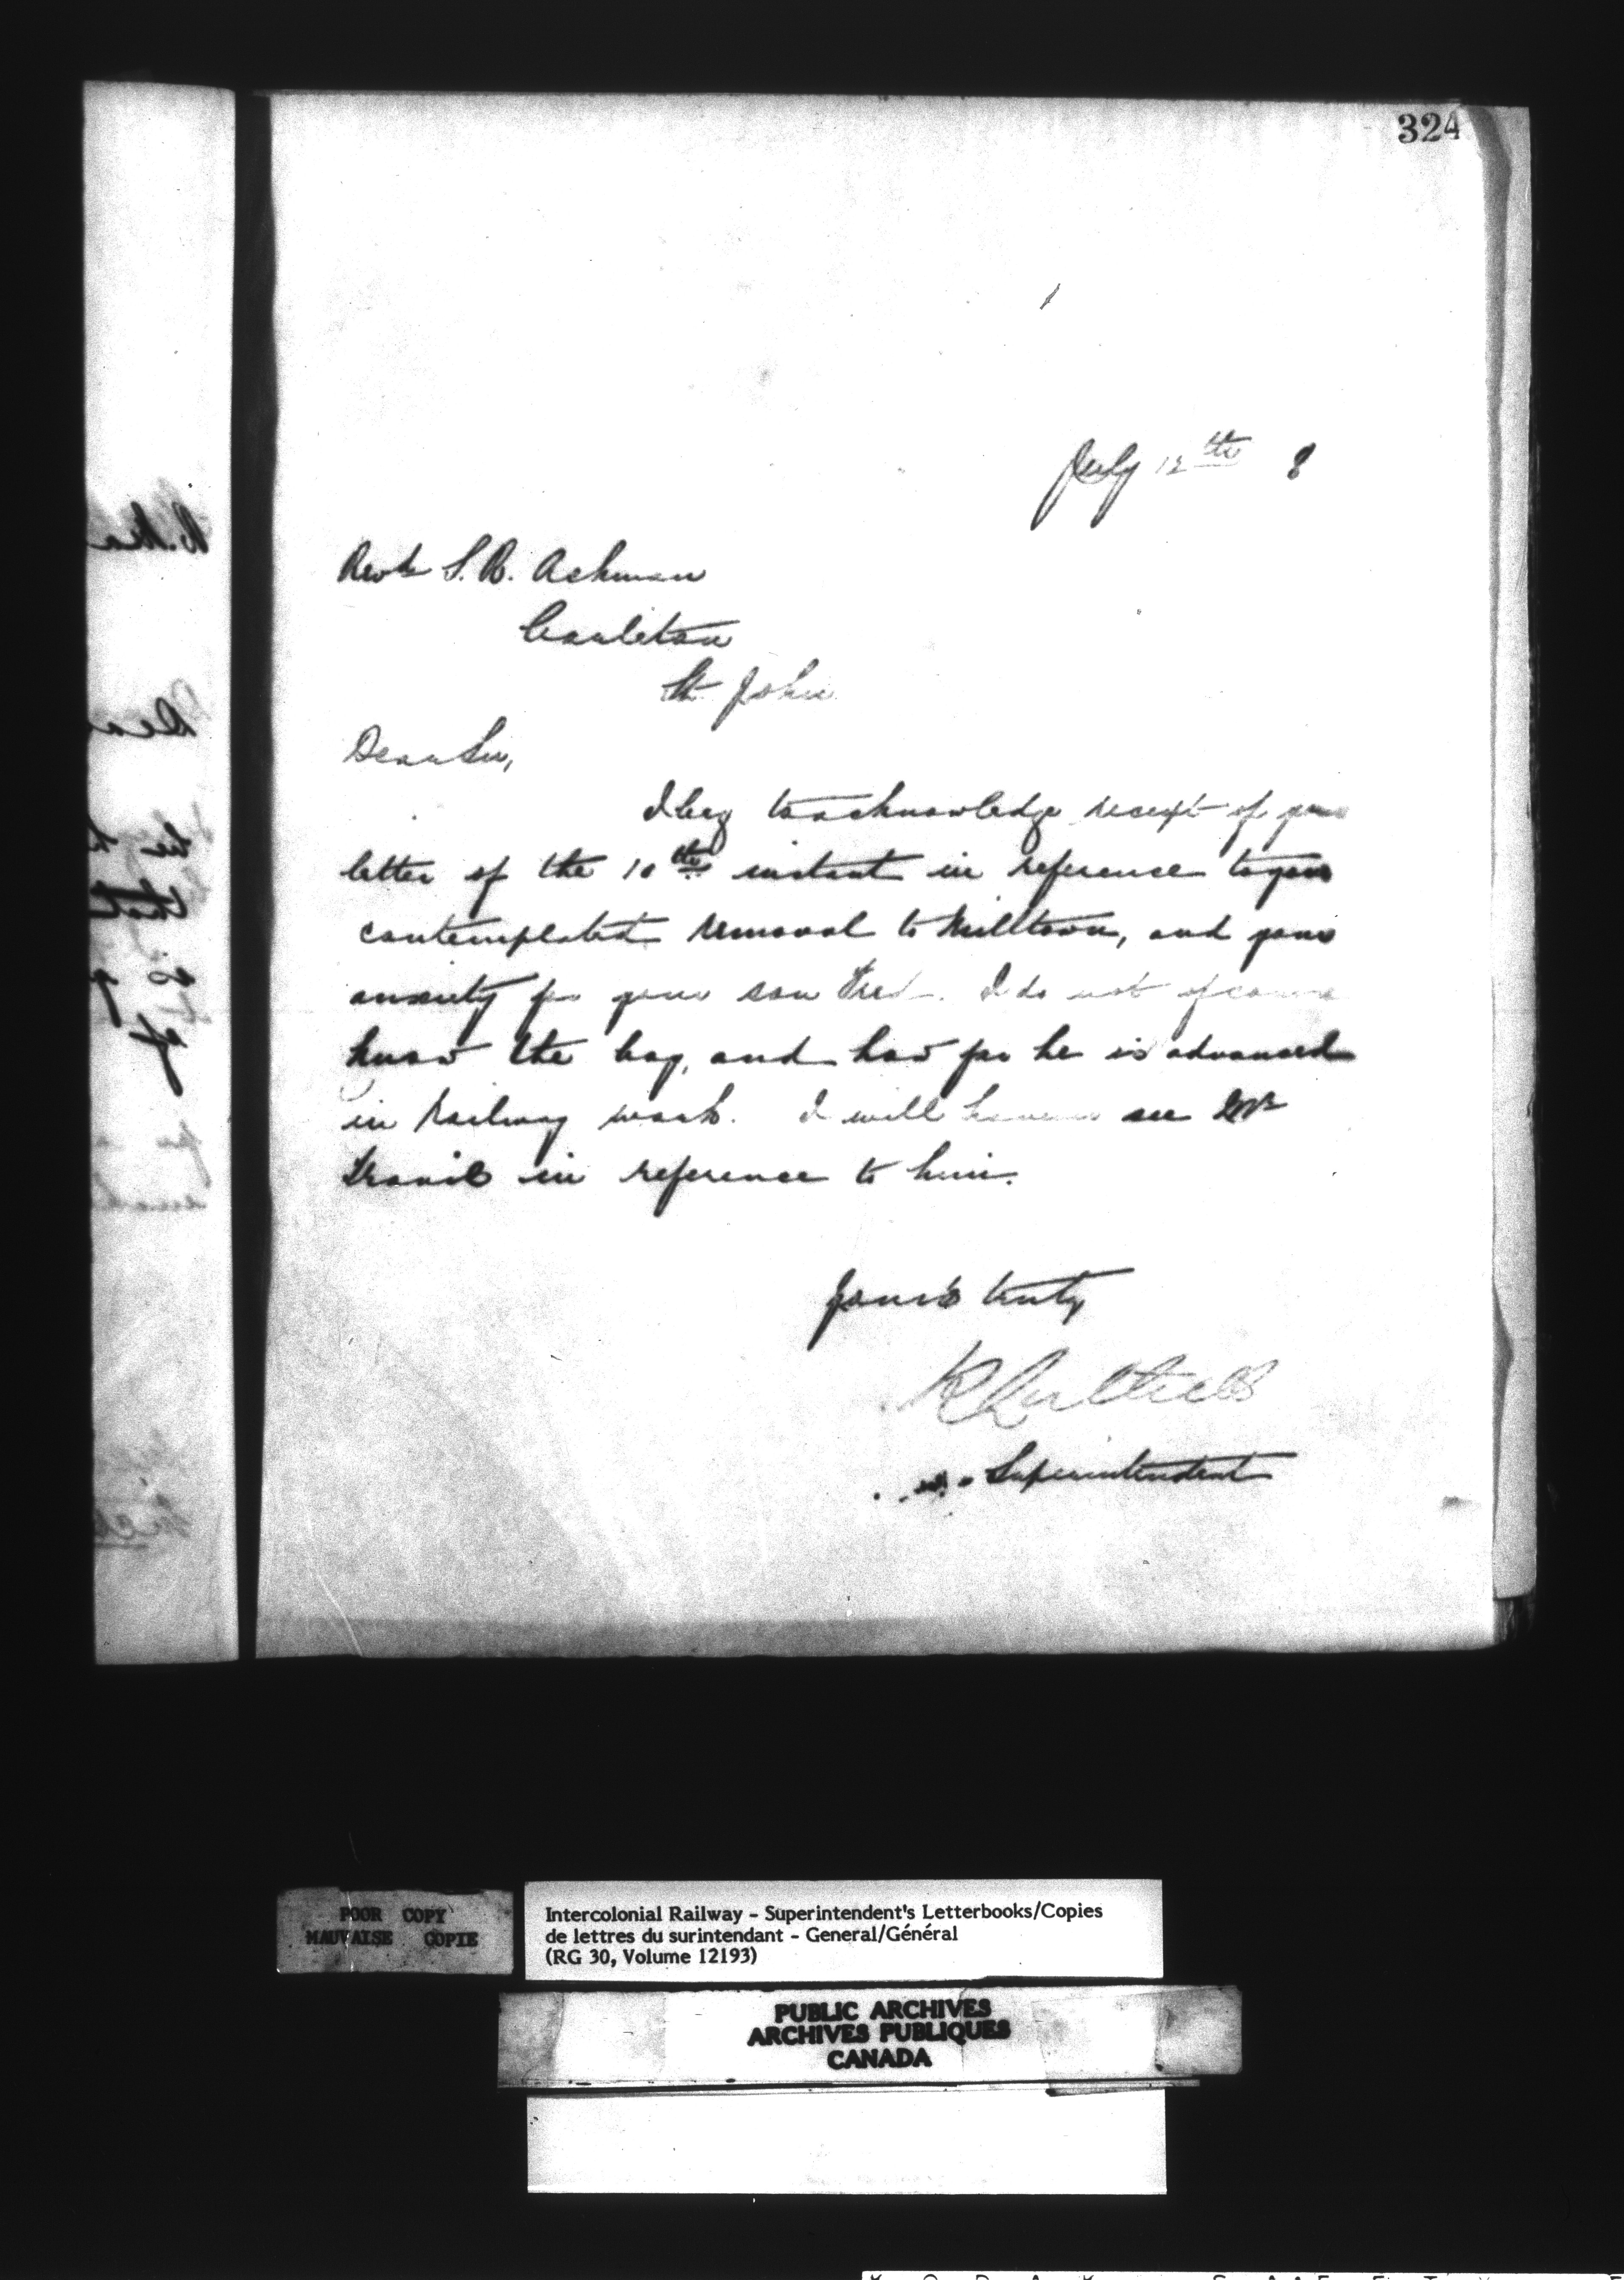 324
July 12th 8
Revd S. R. Ackman
Carleton
St. John
Dear Sir,
I beg to acknowledge receipt of your
letter of the 10th instant in reference to your
contemplated removal to Milltown, and your
anxiety for your son Fred. I do not of course
know the boy, and how far he is advanced
in Railway work. I will however see Mr
in reference to him.
Yours truly
Superintendent
POOR COPY
MAUVAISE COPIE
Intercolonial Railway - Superintendent's Letterbooks/Copies
de lettres du surintendant - General/Général
(RG 30, Volume 12193)
PUBLIC ARCHIVES
ARCHIVES PUBLIQUES
CANADA